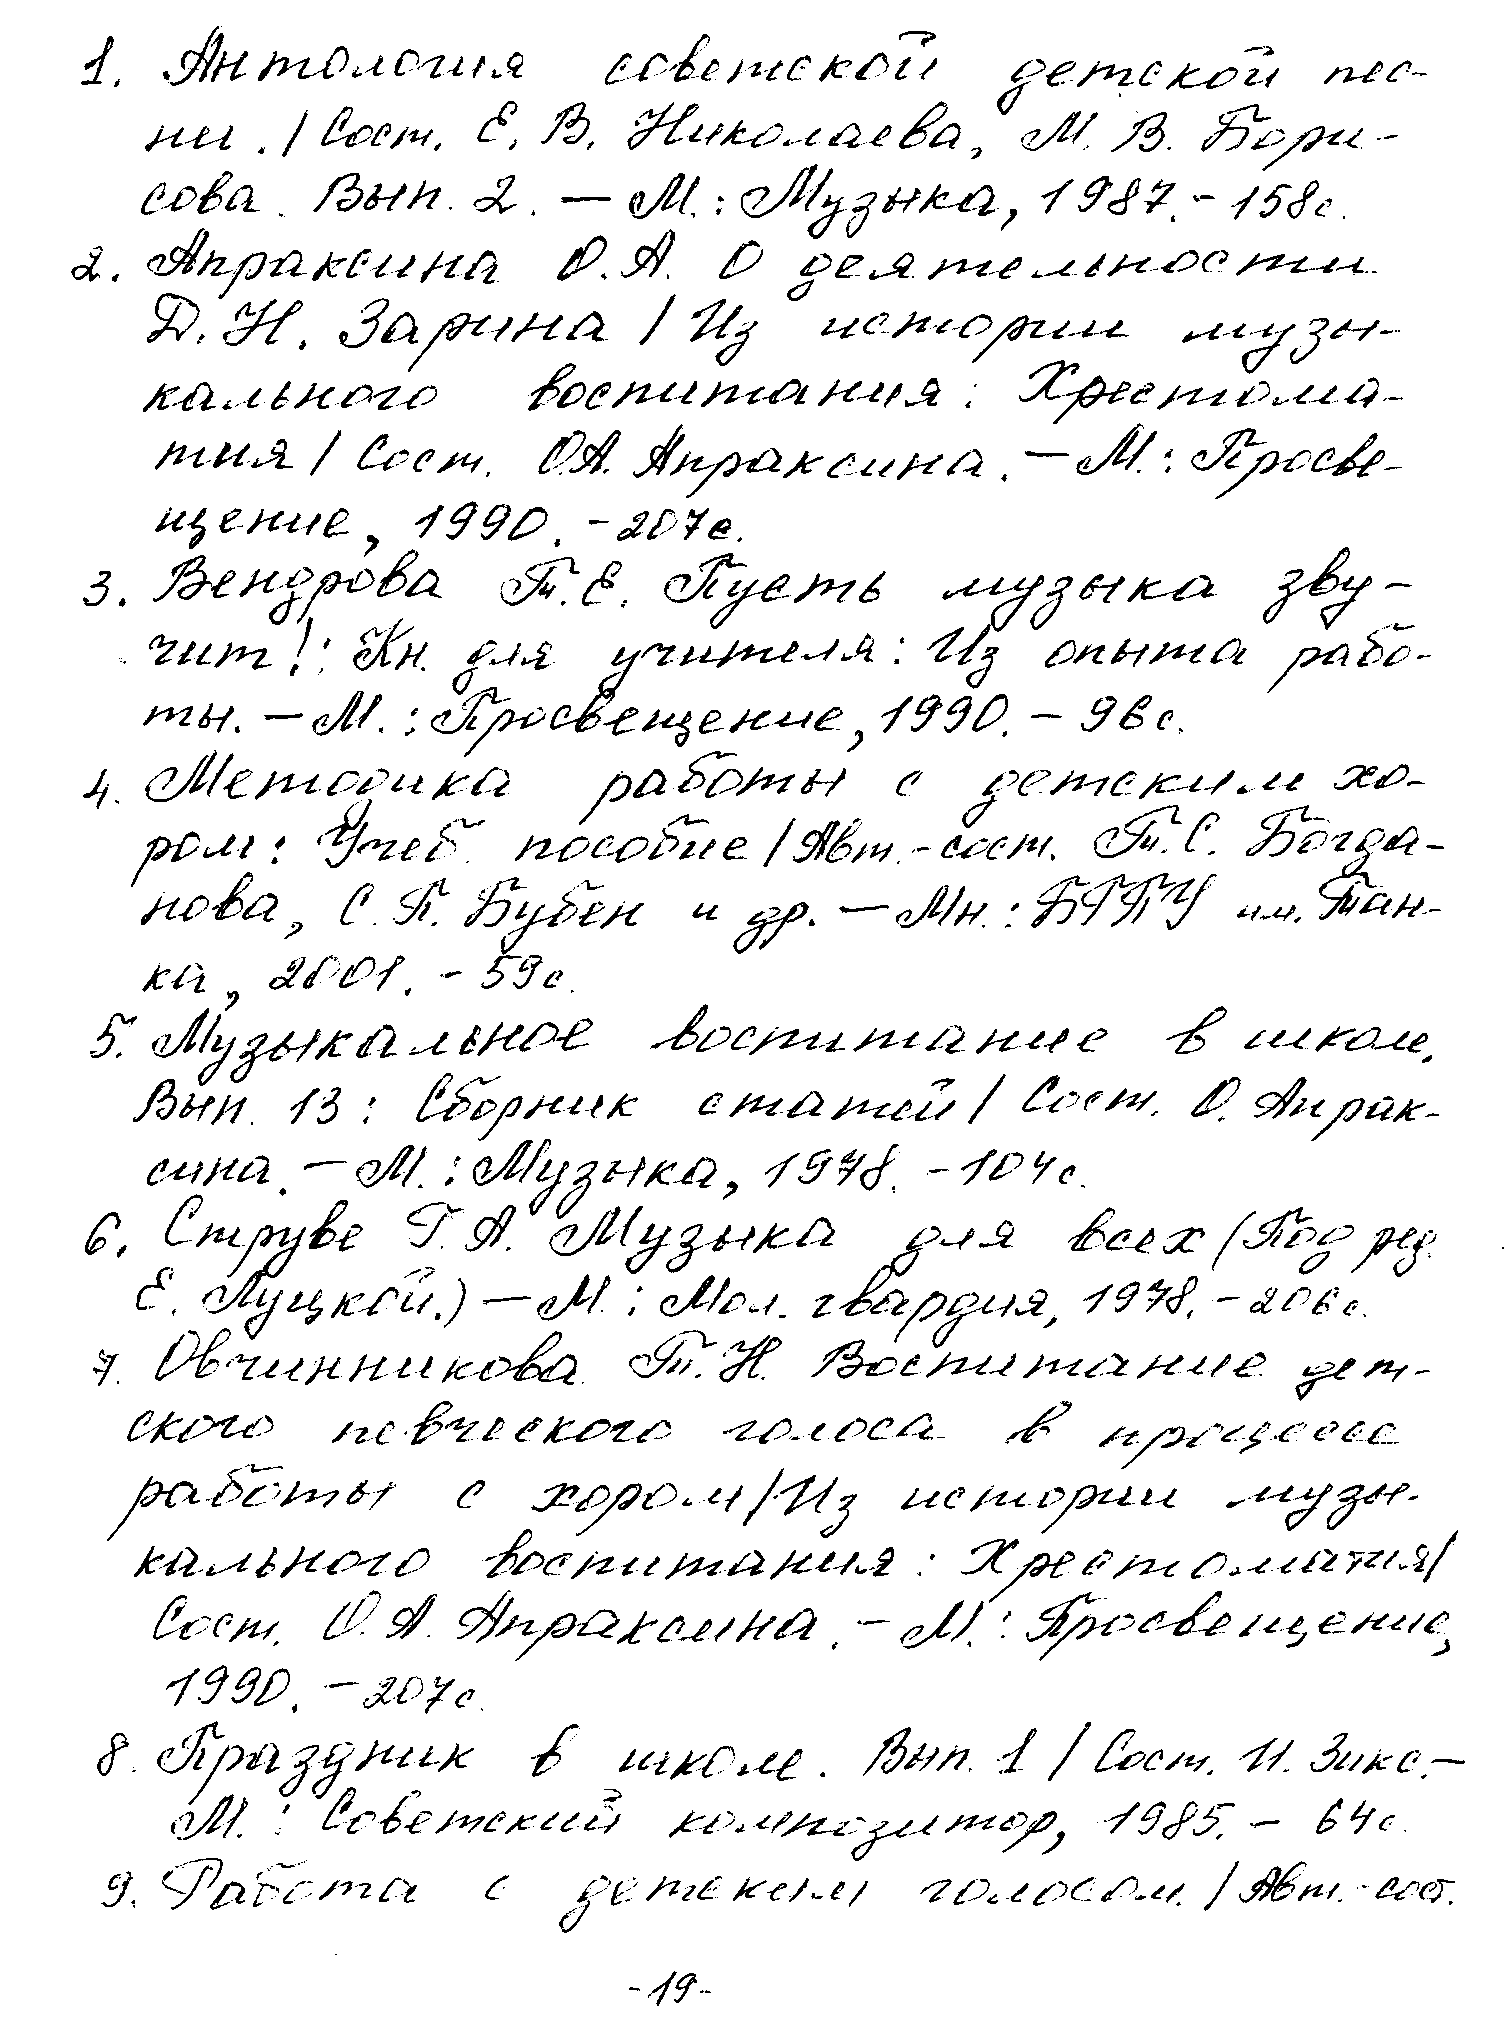 1. Антология советской детской пес-
ни. / Сост. Е. В. Николаева, М. В. Бори-
сова. Вып. 2. — М.: Музыка, 1987. - 158с.
2. Апраксина О. А. О деятельности
Д. Н. Зарина / Из истории музы-
кального воспитания: Хрестома-
тия / Сост. О.А. Апраксина. — М.: Просве-
щение, 1990. - 207с.
3. Вендрова Т. Е. Пусть музыка зву-
чит!: Кн. для учителя: Из опыта рабо-
ты. — М.: Просвещение, 1990. - 96с.
4. Методика работы с детским хо-
ром: Учеб. пособие / Авт.-сост. Т. С. Богда-
нова, С. П. Бубен и др. — Мн.: БГПУ им. Тан-
ка, 2001. - 59с.
5. Музыкальное воспитание в школе.
Вып. 13: Сборник статей / Сост. О. Апрак-
сина. — М.: Музыка, 1978. - 104с.
6. Струве Г. А. Музыка для всех (Под ред.
Е. Луцкой.) — М.: Мол. гвардия, 1978. - 206с.
7. Овчинникова Т. Н. Воспитание дет-
ского певческого голоса в процессе
работы с хором / Из истории музы-
кального воспитания: Хрестоматия /
Сост. О. А. Апраксина. — М.: Просвещение,
1990. - 207с.
8. Праздник в школе. Вып. 1 / Сост. И. Зикс. —
М.: Советский композитор, 1985. - 64с.
9. Работа с детским голосом. / Авт.-сост.
-19-